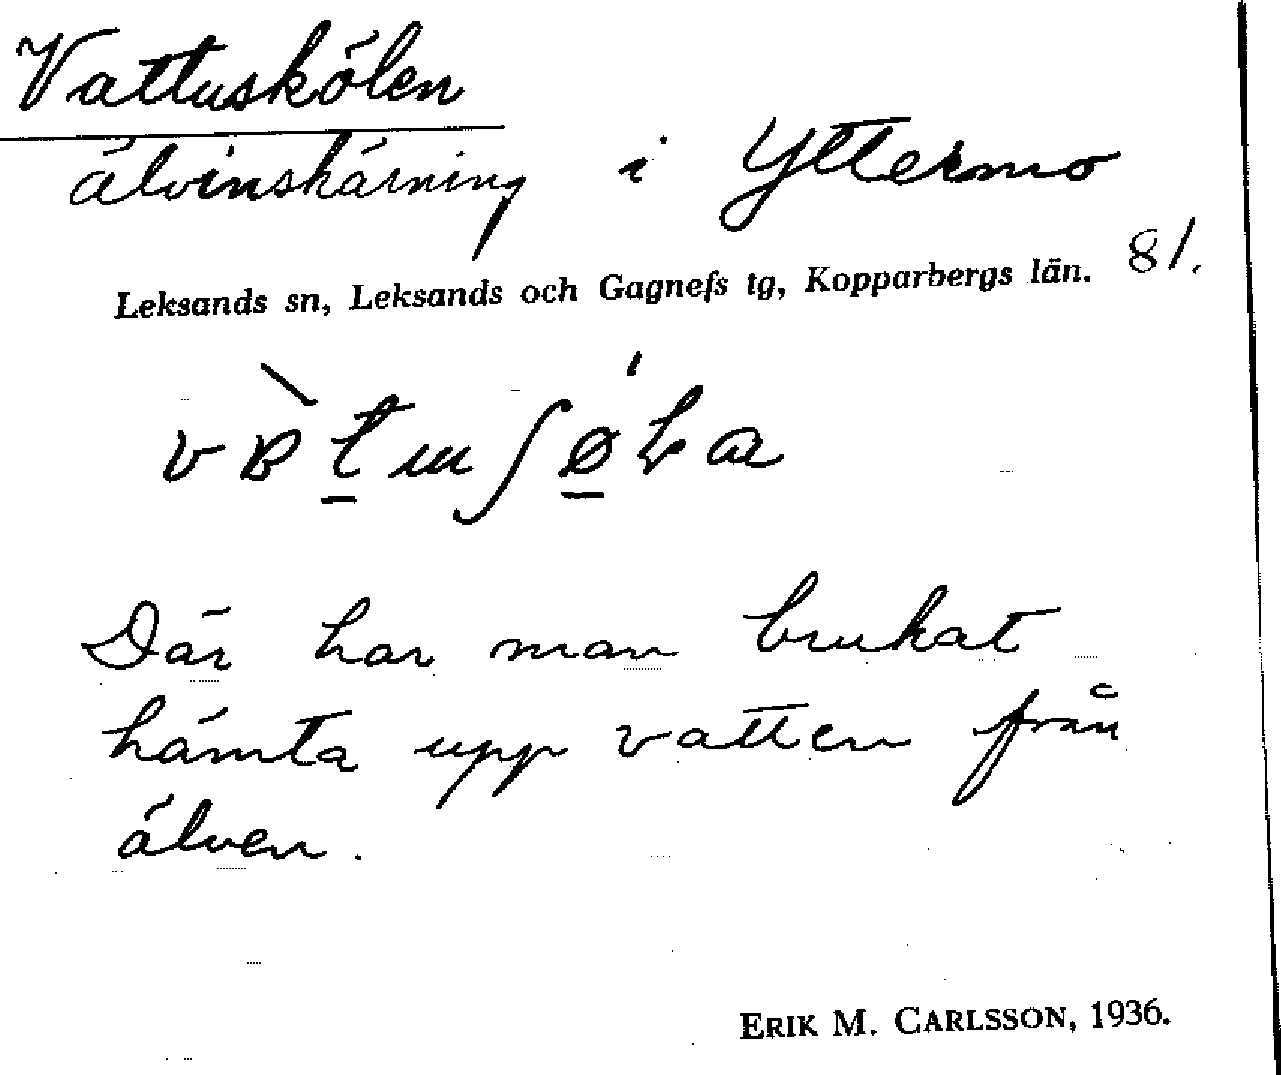 Vattuskölen
älvinskärning i Yttermo
Leksands sn, Leksands och Gagnefs tg, Kopparbergs län. 81.
Där har man brukat
hämta upp vatten från
älven.
ERIK M. CARLSSON, 1936.